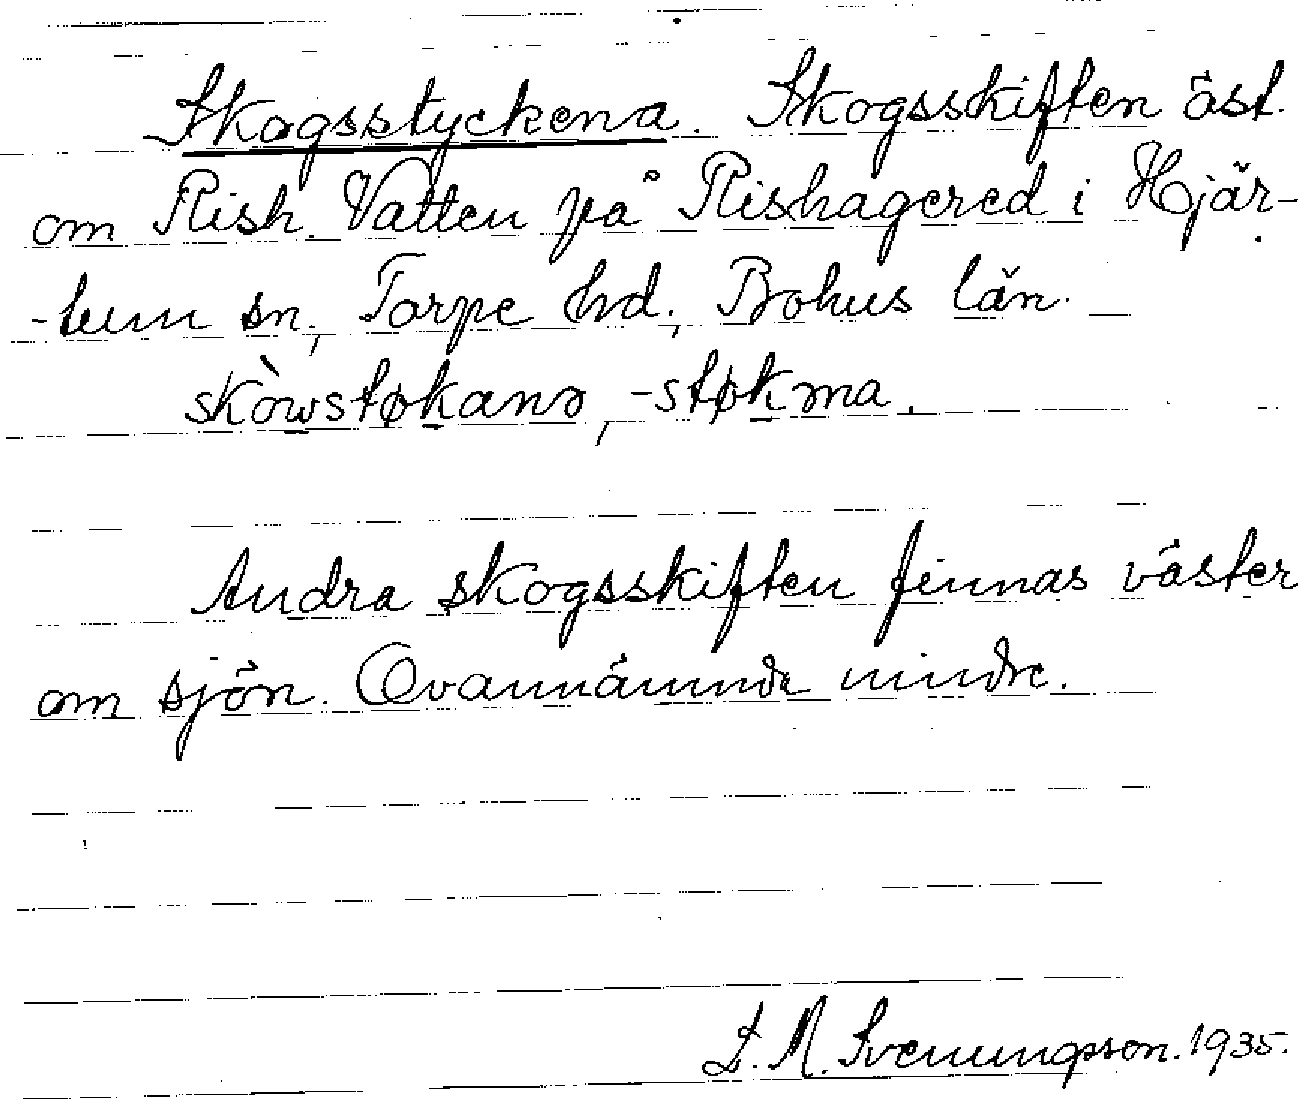 Skogsstyckena. Skogsskiften öst.
om Rish. Vatten på Rishagered i Hjär-
-tum sn, Torpe hd, Bohus län.
skòwstøkanə, -støkma.
Andra skogsskiften finnas väster
om sjön. Ovannämnda mindre.
S. M. Svenungson. 1935.